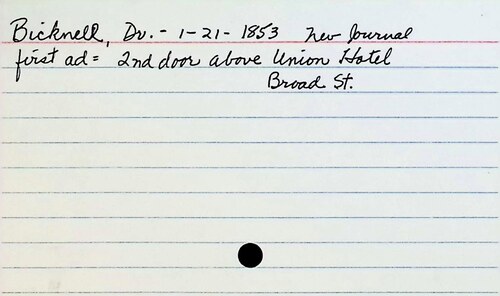 Bicknell, Dr. - 1-21-1853 Nev Journal
first ad = 2nd door above Union Hotel
Broad St.